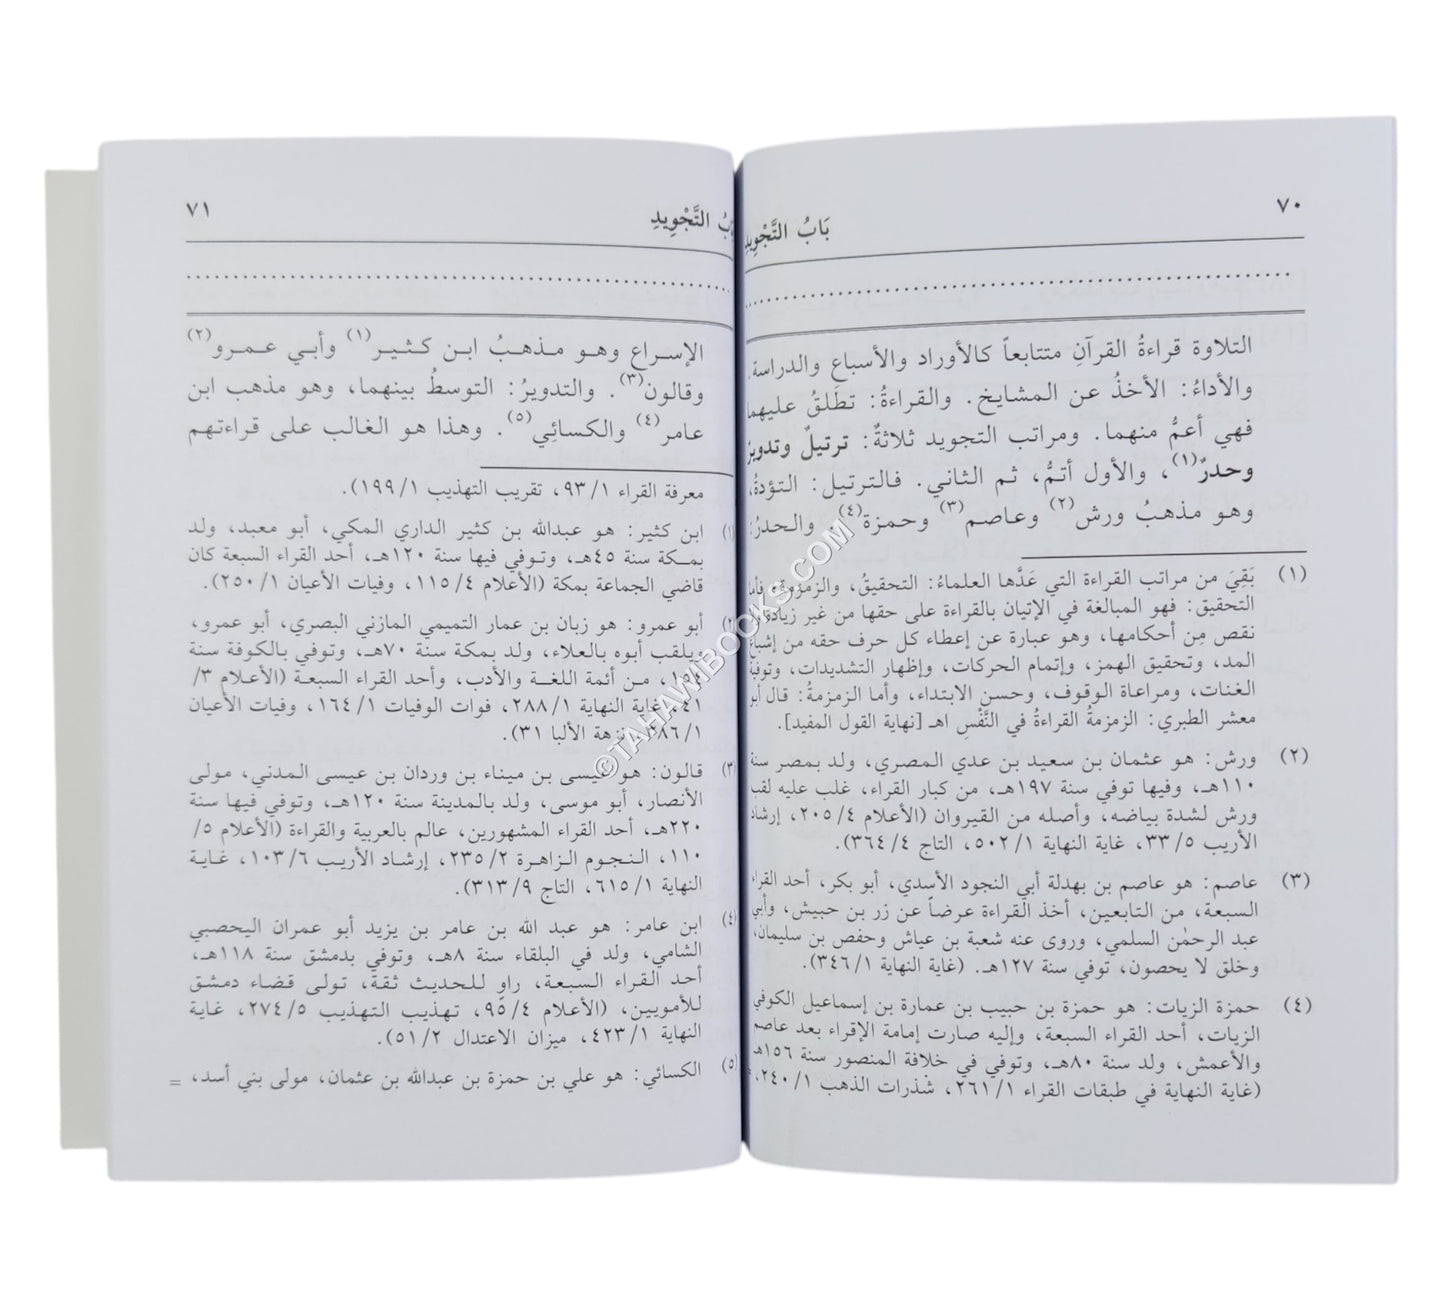 ٧٠
بَابُ التَّجْوِيدِ
التلاوة قراءةُ القرآنِ متتابعاً كالأوراد والأسباع والدراسة.
والأداءُ: الأخذُ عن المشايخ. والقراءةُ: تطلَقُ عليهما
فهي أعمُّ منهما. ومراتب التجويد ثلاثةٌ: ترتيلٌ وتدويرٌ
وحدرٌ(١)، والأول أتمُّ، ثم الثاني. فالترتيل: التؤدةُ،
وهو مذهبُ ورش(٢) وعاصم(٣) وحمزة(٤). والحدرُ:
(١) بَقِيَ من مراتب القراءة التي عَدَّها العلماءُ: التحقيقُ، والزمزمةُ، فأما
التحقيق: فهو المبالغة في الإتيان بالقراءة على حقها من غير زيادة
نقص مِن أحكامها، وهو عبارة عن إعطاء كل حرف حقه من إشباع
المد، وتحقيق الهمز، وإتمام الحركات، وإظهار التشديدات، وتوفية
الغنات، ومراعاة الوقوف، وحسن الابتداء، وأما الزمزمةُ: قال أبو
معشر الطبري: الزمزمةُ القراءةُ في النَّفْسِ اهـ [نهاية القول المفيد].
(٢) ورش: هو عثمان بن سعيد بن عدي المصري، ولد بمصر سنة
١١٠هـ، وفيها توفي سنة ١٩٧هـ، من كبار القراء، غلب عليه لقب
ورش لشدة بياضه، وأصله من القيروان (الأعلام ٢٠٥/٤، إرشاد
الأريب ٣٣/٥، غاية النهاية ٥٠٢/١، التاج ٣٦٤/٤).
(٣) عاصم: هو عاصم بن بهدلة أبي النجود الأسدي، أبو بكر، أحد القراء
السبعة، من التابعين، أخذ القراءة عرضاً عن زر بن حبيش، وأبي
عبد الرحمٰن السلمي، وروى عنه شعبة بن عياش وحفص بن سليمان،
وخلق لا يحصون، توفي سنة ١٢٧هـ. (غاية النهاية ٣٤٦/١).
(٤) حمزة الزيات: هو حمزة بن حبيب بن عمارة بن إسماعيل الكوفي
الزيات، أحد القراء السبعة، وإليه صارت إمامة الإقراء بعد عاصم
والأعمش، ولد سنة ٨٠هـ، وتوفي في خلافة المنصور سنة ١٥٦هـ
(غاية النهاية في طبقات القراء ٢٦١/١، شذرات الذهب ٢٤٠/١، =
٧١
بَابُ التَّجْوِيدِ
الإسراع وهو مذهبُ ابن كثير(١) وأبي عمرو(٢)
وقالون(٣). والتدويرُ: التوسطُ بينهما، وهو مذهب ابن
عامر(٤) والكسائِي(٥). وهذا هو الغالب على قراءتهم
معرفة القراء ٩٣/١، تقريب التهذيب ١٩٩/١).
(١) ابن كثير: هو عبدالله بن كثير الداري المكي، أبو معبد، ولد
بمكة سنة ٤٥هـ، وتوفي فيها سنة ١٢٠هـ، أحد القراء السبعة كان
قاضي الجماعة بمكة (الأعلام ١١٥/٤، وفيات الأعيان ٢٥٠/١).
أبو عمرو: هو زبان بن عمار التميمي المازني البصري، أبو عمرو،
ويلقب أبوه بالعلاء، ولد بمكة سنة ٧٠هـ، وتوفي بالكوفة سنة
من أئمة اللغة والأدب، وأحد القراء السبعة (الأعلام ٣/
٤١، غاية النهاية ٢٨٨/١، فوات الوفيات ١٦٤/١، وفيات الأعيان
٣٨٦/١، نزهة الألبا ٣١).
(٣) قالون: هو عيسى بن ميناء بن وردان بن عيسى المدني، مولى
الأنصار، أبو موسى، ولد بالمدينة سنة ١٢٠هـ، وتوفي فيها سنة
٢٢٠هـ، أحد القراء المشهورين، عالم بالعربية والقراءة (الأعلام ٥/
١١٠، النجوم الزاهرة ٢٣٥/٢، إرشاد الأريب ١٠٣/٦، غاية
النهاية ٦١٥/١، التاج ٣١٣/٩).
(٤) ابن عامر: هو عبد الله بن عامر بن يزيد أبو عمران اليحصبي
الشامي، ولد في البلقاء سنة ٨هـ، وتوفي بدمشق سنة ١١٨هـ،
أحد القراء السبعة، راوٍ للحديث ثقة، تولى قضاء دمشق
للأمويين، (الأعلام ٩٥/٤، تهذيب التهذيب ٢٧٤/٥، غاية
النهاية ٤٢٣/١، ميزان الاعتدال ٥١/٢).
(٥) الكسائي: هو علي بن حمزة بن عبدالله بن عثمان، مولى بني أسد، =
©TAHAWIBOOKS.COM